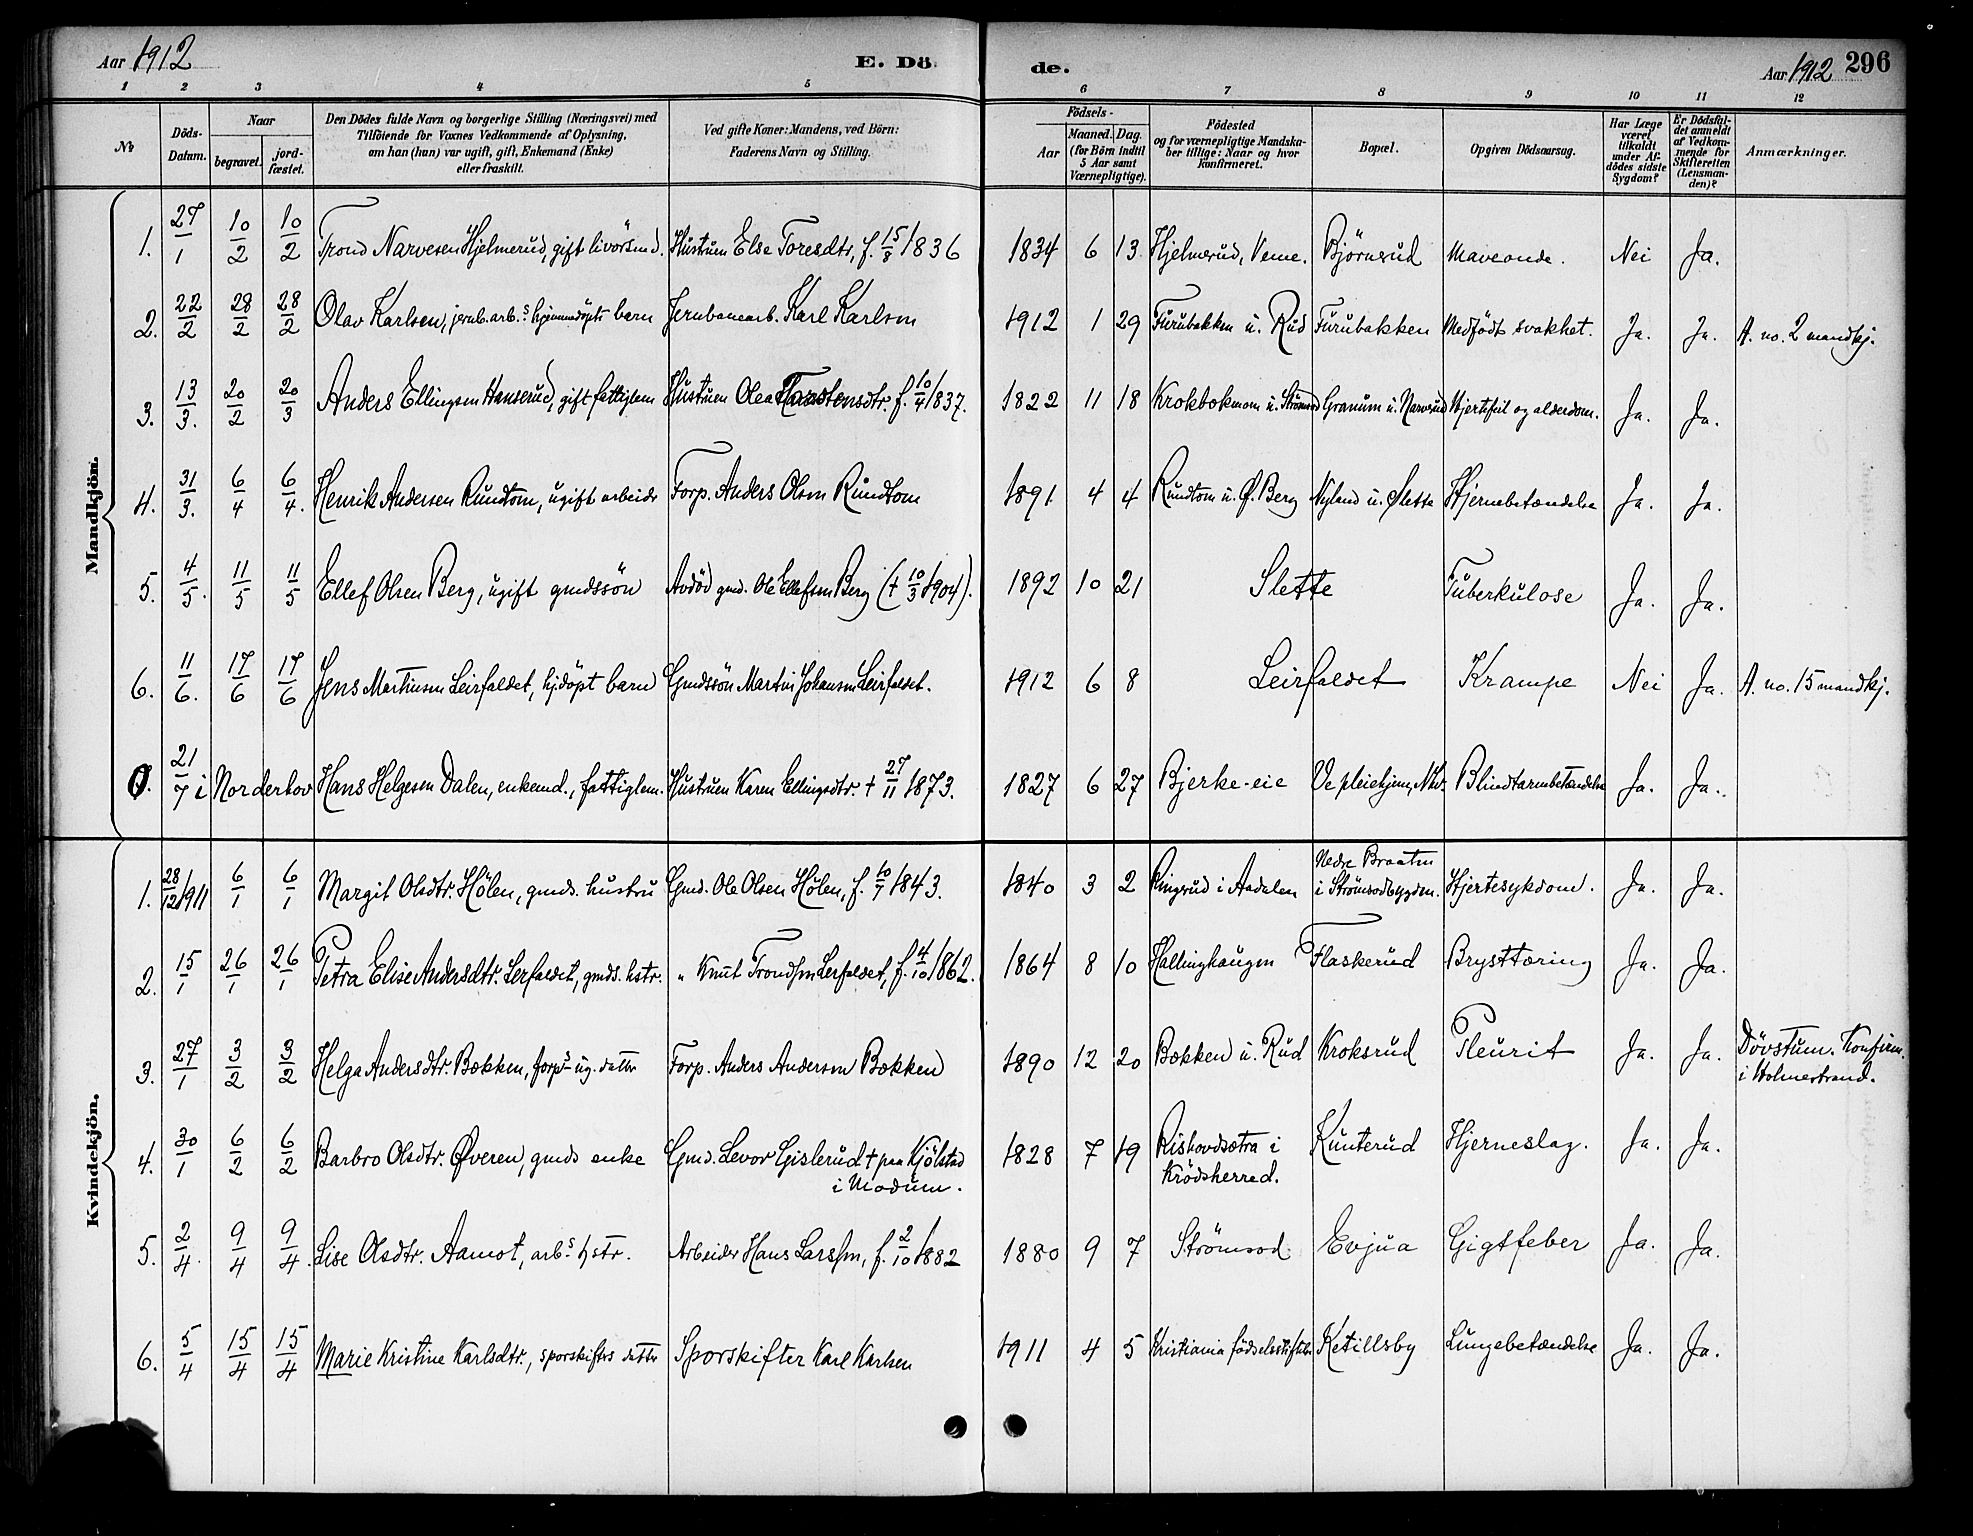 Aar 1912 E. Dö- de. Aar 1912 296
1 2 3 4 5 6 7 8 9 10 11 12
No
Döds-Datum.
Naar
begravet.
jord-fæstet.
Den Dödes fulde Navn og borgerlige Stilling (Næringsvei) med
Tilföiende for Voxnes Vedkommende af Oplysning,
om han (hun) var ugift, gift, Enkemand (Enke)
eller fraskilt.
Ved gifte Koner: Mandens, ved Börn:
Faderens Navn og Stilling.
Födsels-
Aar
Maaned. Dag.
(for Börn indtil
5 Aar samt
Værnepligtige).
Födested
og for værnepligtige Mandska-
ber tillige: Naar og hvor
konfirmeret.
Bopæl.
Opgiven Dödsaarsag.
Har Læge
været
tilkaldt
under Af-
dödes sidste
Sygdom?
Er Dödsfal-
det anmeldt
af Vedkom-
mende for
Skifteretten
(Lensman-
den)?
Anmærkninger.
Mandkjön.
1. 27/1 10/2 10/2 Trond Narvesen Hjelmerud, gift livörsmd. Hustruen Else Toresdtr, f. 15/8 1836 1834 6 13 Hjelmerud, Veme. Björnerud Maveonde. Nei Ja.
2. 22/2 28/2 28/2 Olav Karlsen, jernb.arb.s hjemmedöpt barn Jernbanearb. Karl Karlsen 1912 1 29 Furubakken u. Rud Furubakken Medfödt svakhet. Ja. Ja. A. no. 2 mandkj.
3. 13/3. 20/2 20/3 Anders Ellingsen Hanserud, gift fattiglem Hustruen Olea Torstensdtr. f. 10/4 1837. 1822 11 18 Krokbokmom u. Strömsod Granum u. Narverud Hjertefeil og alderdom. Ja. Ja.
4. 31/3. 6/4 6/4. Henrik Andersen Rundtom, ugift arbeider Forp. Anders Olsen Rundtom 1891 4 4 Rundtom u. Ø. Berg Nylend u. Slette Hjernebetændelse Ja. Ja.
5. 4/5. 11/5 11/5 Ellef Olsen Berg, ugift gmdssön Avdöd gmd. Ole Ellefsen Berg († 10/3 1904). 1892 10 21 Slette Tuberkulose Ja. Ja.
6. 11/6. 17/6 17/6 Jens Martinsen Leirfaldet, hjdöpt barn Gmdssön Martin Johansen Leirfaldet. 1912 6 8 Leirfaldet Krampe Nei Ja. A. no. 15 mandkj.
0. 21/7 i Norderhov Hans Helgesen Dalen, enkemd., fattiglem. Hustruen Karen Ellingsdtr. † 27/11 1873. 1827 6 27 Bjerke-eie Ve pleiehjem, Nhv. Blindtarmbetændelse Ja. Ja.
Kvindekjön.
1. 28/12 1911 6/1 6/1 Margit Olsdtr. Hølen, gmds. hustru Gmd. Ole Olsen Hølen, f. 10/7 1843. 1840 3 2 Ringerud i Aadalen Nedre Braaten
i Strömsodbygden. Hjertesykdom. Ja. Ja.
2. 15/1 26/1 26/1 Petra Elise Andersdtr. Lerfaldet, gmds. hstr. " Knut Trondsen Lerfaldet, f. 4/10 1862. 1864 8 10 Hallinghaugen Flaskerud Brysttæring Ja. Ja.
3. 27/1 3/2 3/2 Helga Andersdtr. Bækken, forp.s ug. datter Forp. Anders Andersen Bækken 1890 12 20 Bækken u. Rud Kroksrud Pleurit Ja. Ja. Dövstum. Konfirm.
i Holmestrand.
4. 30/1 6/2 6/2 Barbro Olsdtr. Øveren, gmds enke Gmd. Levor Gislerud † paa Kjölstad
i Modum. 1828 7 19 Rishovdsætra i
Krödsherred. Kunterud Hjerneslag. Ja. Ja.
5. 2/4. 9/4 9/4. Lise Olsdtr. Aamot, arb.s hstr. Arbeider Hans Larssen, f. 2/10 1882 1880 9 7 Strömsod Evjua Gigtfeber Ja. Ja.
6. 5/4 15/4 15/4 Marie Kristine Karlsdtr., sporskifters datter Sporskifter Karl Karlsen 1911 4 5 Kristiania födselsstiftelse Ketillsby Lungebetændelse Ja. Ja.